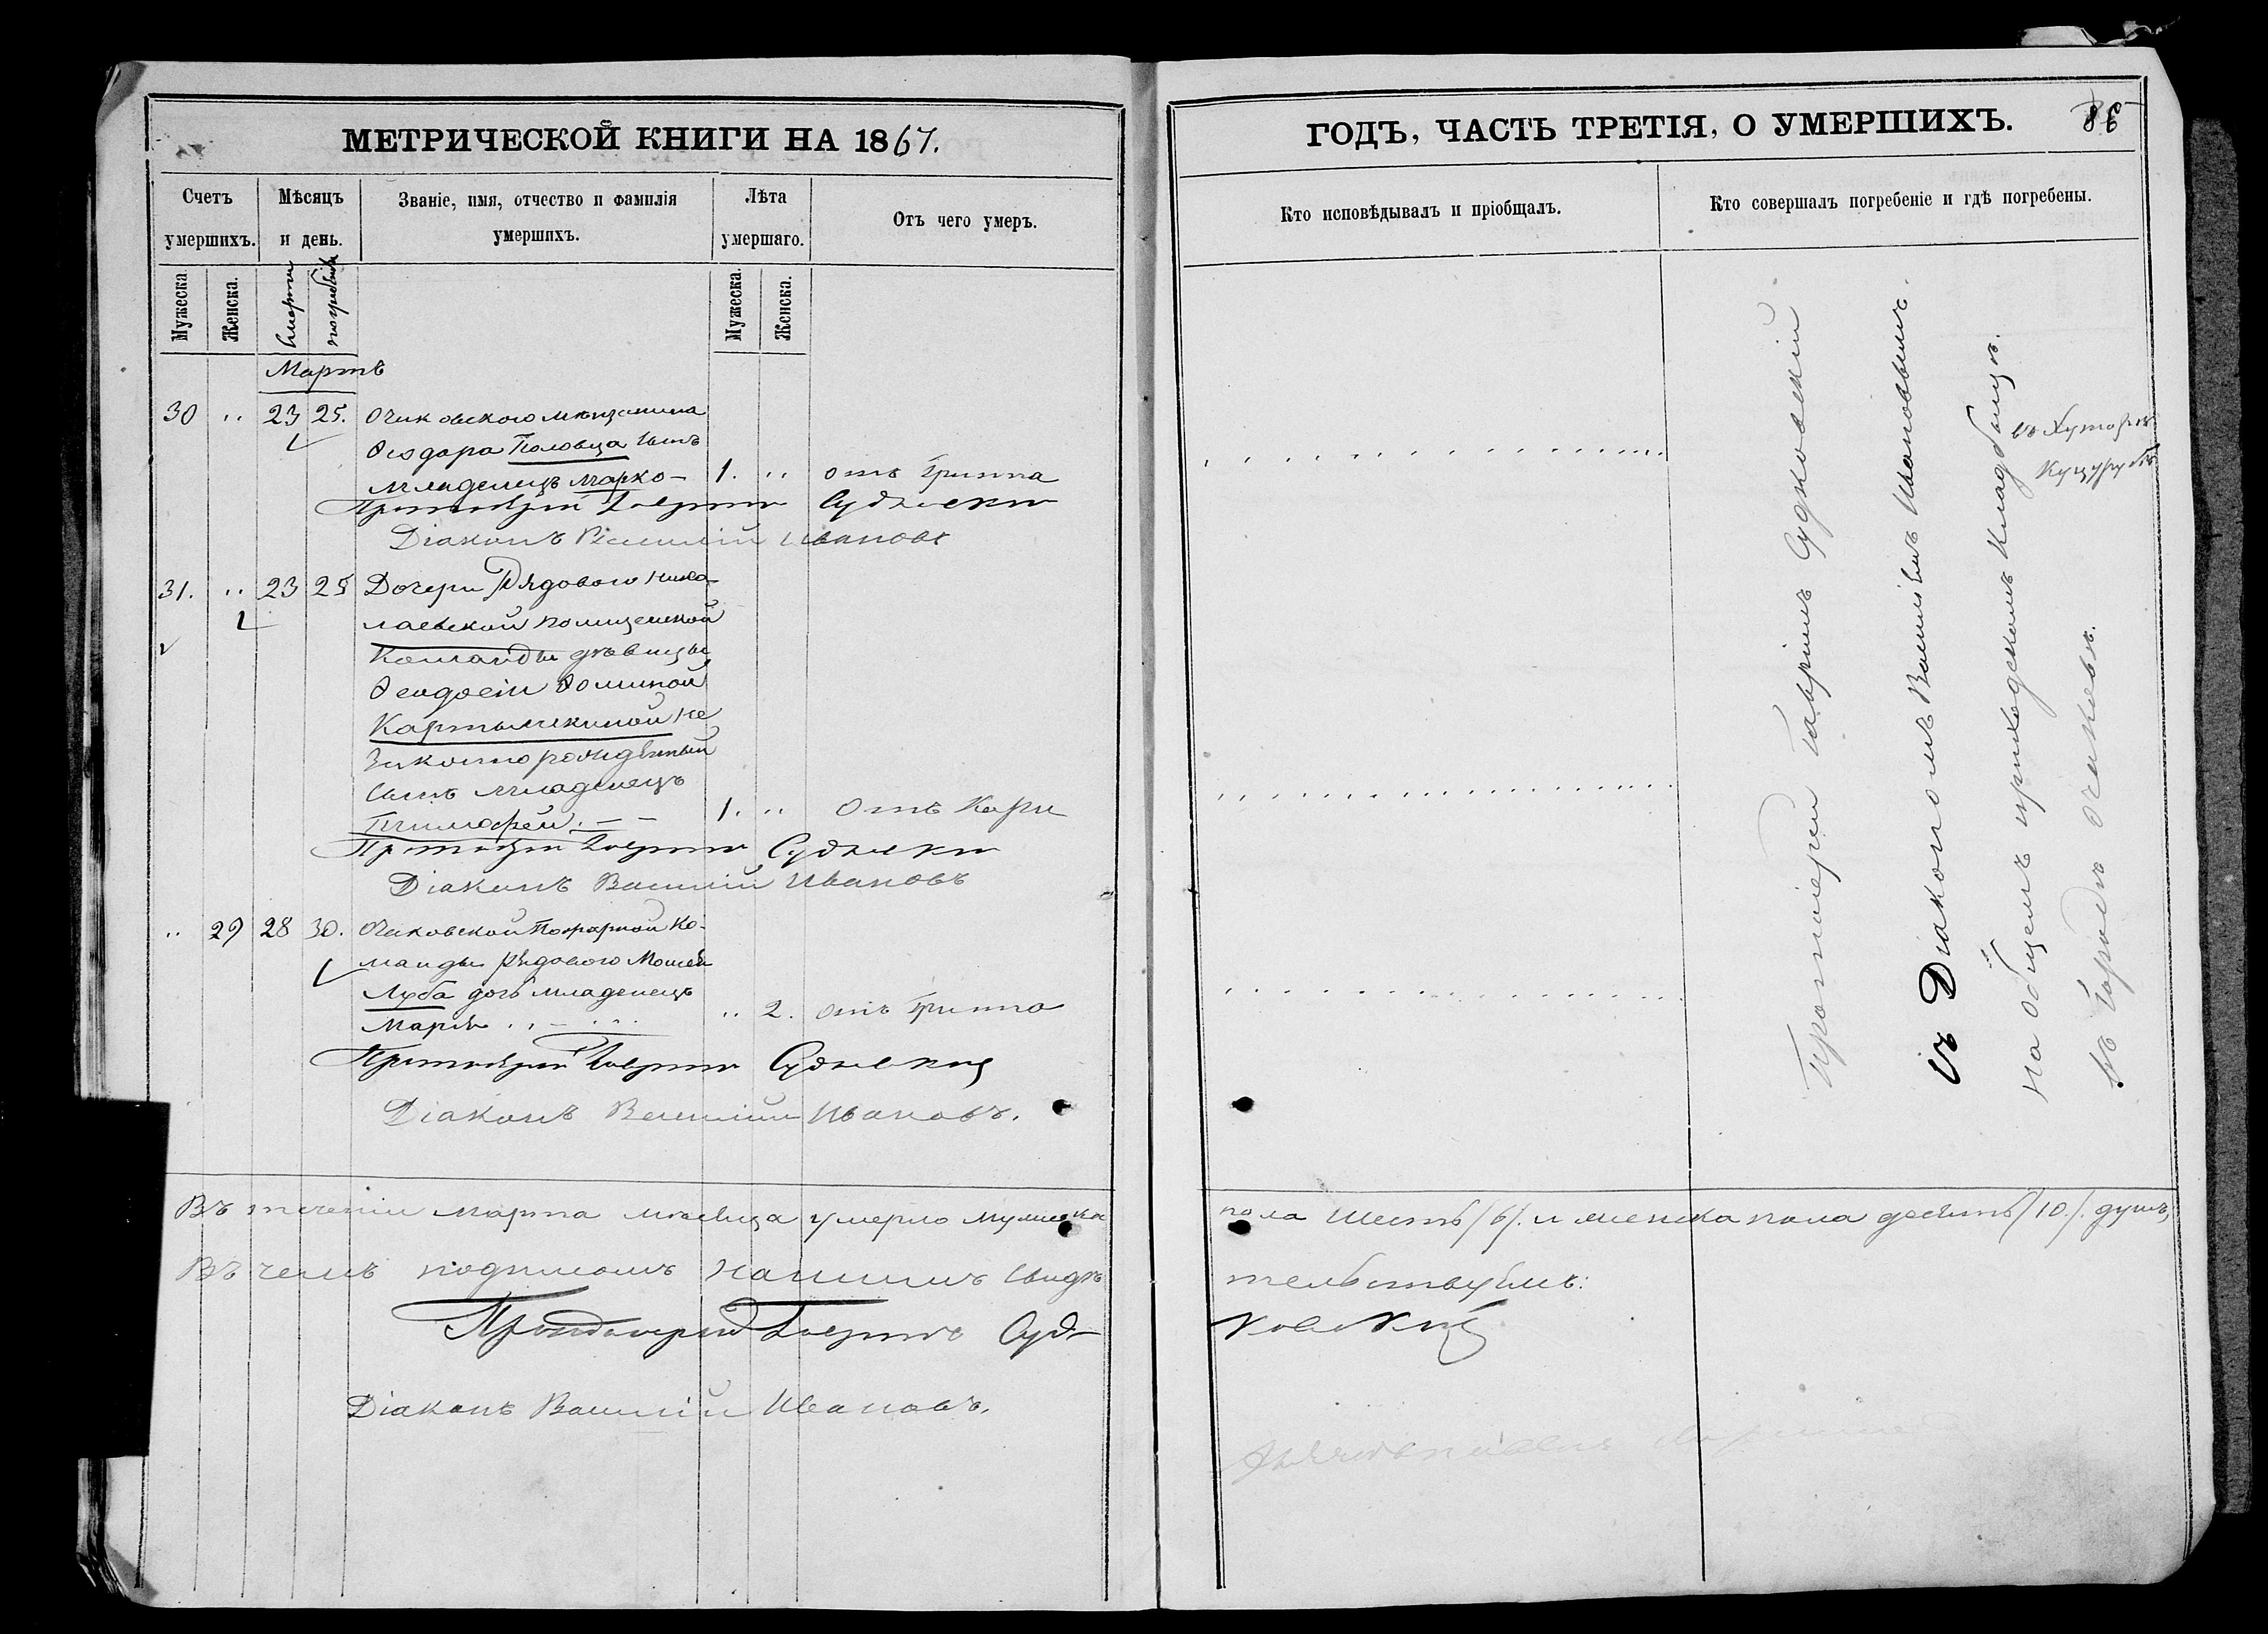 МЕТРИЧЕСКОЙ КНИГИ НА 1867.
Счетъ умершихъ.
Мѣсяцъ и день.
Званіе, имя, отчество и фамилія умершихъ.
Лѣта умершаго.
Отъ чего умеръ.
Мужеска.
Женска.
смерти
погребенія
Мужеска.
Женска.
Мартъ
30 " 23 25. Очаковского мѣщанина
Ѳеодора Половца сынъ
младенецъ Марко – 1. " отъ гриппа
Протоіерей Гавріилъ Судковскій
Діаконъ Василій Ивановъ
31. " 23 25 Дочери Рядового Нико-
лаевской полицейской
Команды дѣвицы
Ѳеодосіи Ѳоминой
Картымекиной не
законнорожденный
сынъ младенецъ
Тимофей. – – 1. " отъ Кори
Протоіерей Гавріилъ Судковскій
Діаконъ Василій Ивановъ
" 29 28 30. Очаковской Пожарной Ко-
манды рядового Моисея
Луба дочь младенецъ
Марія " 2. отъ гриппа
Протоіерей Гавріилъ Судковскій
Діаконъ Василій Ивановъ.
Въ теченіи марта мѣсяца умерло мужеска
Въ чемъ подписомъ нашимъ свидѣ
Протоіерей Гавріилъ Суд-
Діаконъ Василій Ивановъ.
ГОДЪ, ЧАСТЬ ТРЕТІЯ, О УМЕРШИХЪ.
Кто исповѣдывалъ и пріобщалъ.
Кто совершалъ погребеніе и гдѣ погребены.
Протоіерей Гавріилъ Судковскій
съ Діакономъ Василіемъ Ивановымъ.
на общемъ приходскомъ кладбищѣ.
въ городѣ Очаковѣ.
въ Хуторѣ
Куцурубѣ
пола шесть /6/. и женска пола десять /10./. душъ,
тельствуемъ:
ковскій